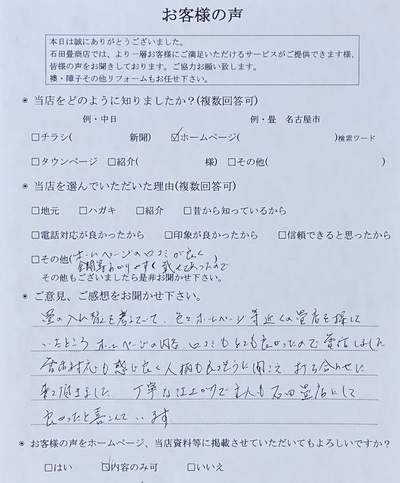 お客様の声
本日は誠にありがとうございました。
石田畳商店では、より一層お客様にご満足いただけるサービスがご提供できます様、
皆様の声をお聞きしております。ご協力お願い致します。
襖・障子その他リフォームもお任せ下さい。
※ 当店をどのように知りましたか?(複数回答可)
例・中日 例・畳 名古屋市
□チラシ( 新聞) ☑ホームページ( )検索ワード
□タウンページ □紹介( 様) □その他( )
※ 当店を選んでいただいた理由(複数回答可)
□地元 □ハガキ □紹介 □昔から知っているから
□電話対応が良かったから □印象が良かったから □信頼できると思ったから
□その他(ホームページの口コミが良く
金額等わかりやすく載くてあったので
その他もございましたら是非お聞かせ下さい。
※ ご意見、ご感想をお聞かせ下さい。
畳の入れ替えを考えていて、色々ホームページ等近くの畳店を探して
いたところ ホームページの内容、口コミもとても良かったので電話しました
電話対応も感じ良く人柄も良さそうに聞こえ 打ち合わせに
来て頂きました 丁寧な仕上がりで主人も石田畳店にして
良かったと喜んでいます
※ お客様の声をホームページ、当店資料等に掲載させていただいてもよろしいですか?
□はい ☑内容のみ可 □いいえ